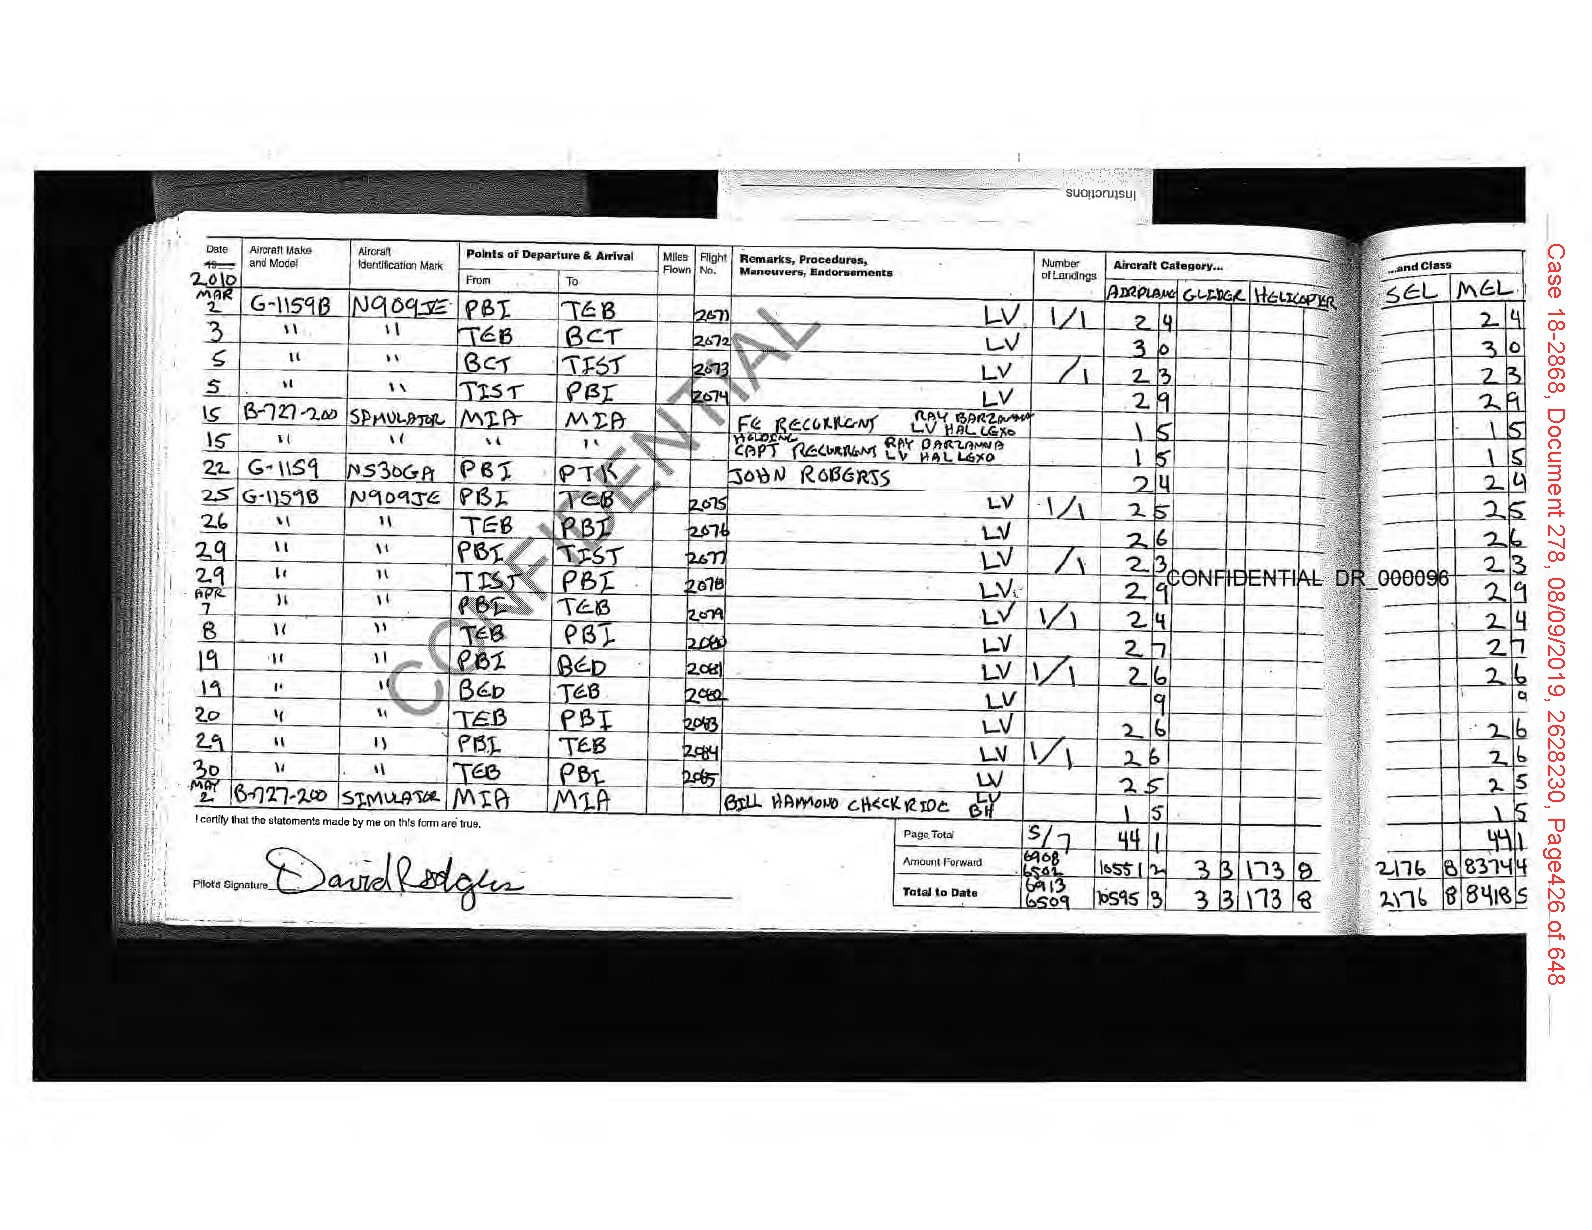 Instructions
Date Aircraft Make and Model Aircraft Identification Mark Points of Departure & Arrival Miles Flown Flight No. Remarks, Procedures, Maneuvers, Endorsements Number of Landings Aircraft Category... ...and Class
19 From To AIRPLANE GLIDER HELICOPTER SEL MEL
2010
MAR 2 G-1159B N909JE PBI TEB 2671 LV 1/1 2 4 2 4
3 " " TEB BCT 2672 LV 3 0 3 0
5 " " BCT TIST 2673 LV /1 2 3 2 3
5 " " TIST PBI 2674 LV 2 9 2 9
15 B-727-200 SIMULATOR MIA MIA FE RECURRENT RAY LV HAL 1 5 1 5
15 " " " " HOLDING CAPT RECURRENT RAY LV HAL 1 5 1 5
22 G-1159 N530GA PBI PTK JOHN ROBERTS 2 4 2 4
25 G-1159B N909JE PBI TEB 2675 LV 1/1 2 5 2 5
26 " " TEB PBI 2676 LV 2 6 2 6
29 " " PBI TIST 2677 LV /1 2 3 2 3
29 " " TIST PBI 2678 LV 2 9 2 9
APR 7 " " PBI TEB 2679 LV 1/1 2 4 2 4
8 " " TEB PBI 2680 LV 2 7 2 7
19 " " PBI BED 2681 LV 1/1 2 6 2 6
19 " " BED TEB 2682 LV 9 9
20 " " TEB PBI 2683 LV 2 6 2 6
29 " " PBI TEB 2684 LV 1/1 2 6 2 6
30 " " TEB PBI 2685 LV 2 5 2 5
MAY 2 B-727-200 SIMULATOR MIA MIA BILL HAMMOND CHECKRIDE LV BH 1 5 1 5
I certify that the statements made by me on this form are true.
Page Total 5/7 44 1 44 1
Amount Forward 6908 6502 10551 2 3 3 173 8 2176 8 8374 4
Pilot's Signature David Rodgers
Total to Date 6913 6509 10595 3 3 3 173 8 2176 8 8418 5
CONFIDENTIAL
CONFIDENTIAL DR_000096
Case 18-2868, Document 278, 08/09/2019, 2628230, Page426 of 648